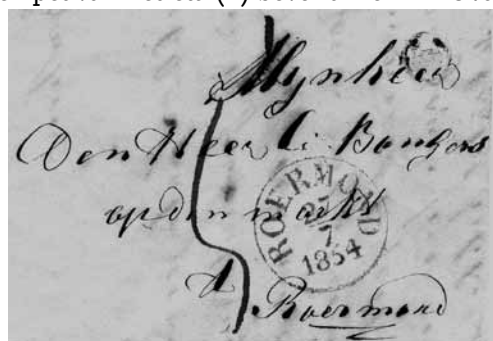 Mynheer
Den Heer C. Bongers
op den markt
ROERMOND
27
7
1854
A
Roermond